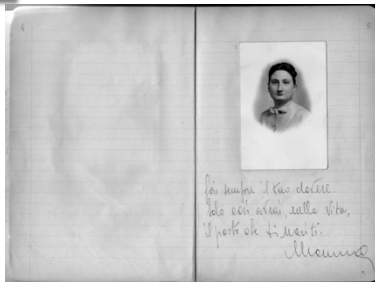 fai sempre il tuo dovere.
Solo così avrai, nella vita,
il posto che ti meriti.
Mamma